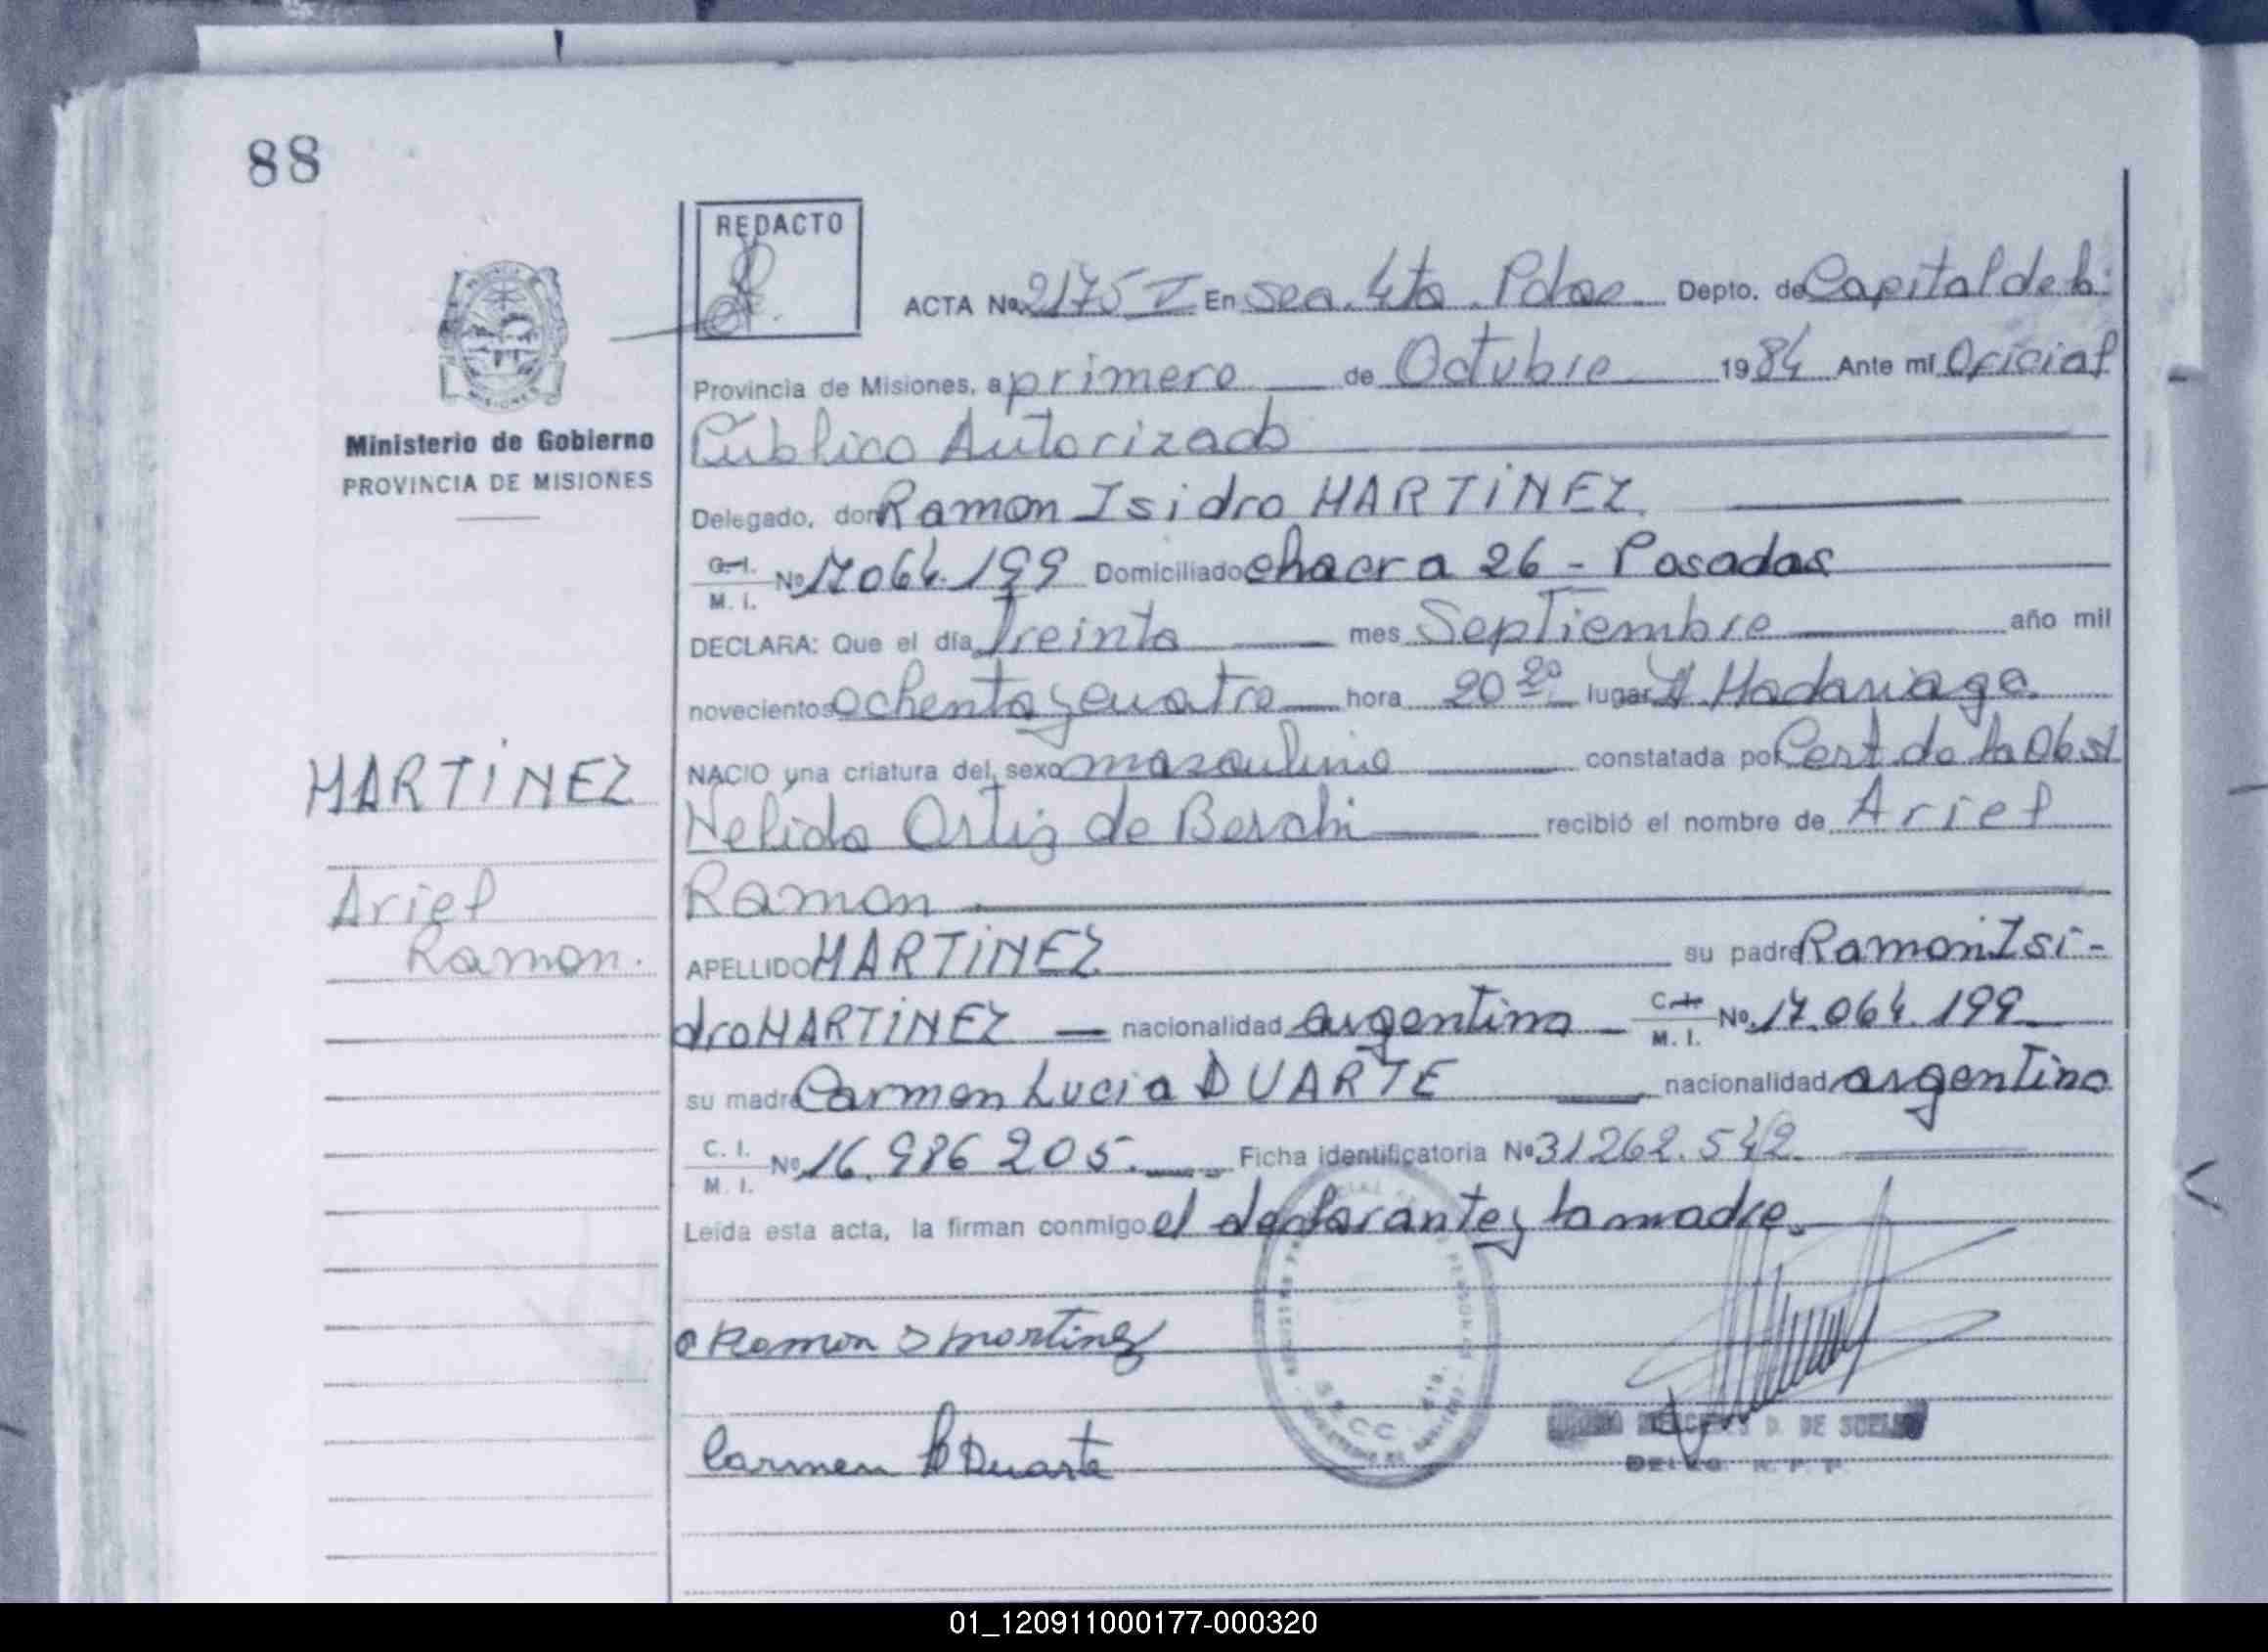 88
REDACTO
ACTA Nº 2175 I En Sec. 4ta Pdas Depto. de Capital de la
Provincia de Misiones, a primero de Octubre 1984 Ante mí Oficial
Público Autorizado
Ministerio de Gobierno
PROVINCIA DE MISIONES
Delegado, don Ramon Isidro MARTINEZ
C.I. M.I. Nº 17.064.199 Domiciliado chacra 26 - Posadas
DECLARA: Que el día Treinta mes Septiembre año mil
novecientos ochenta y cuatro hora 20 20 lugar H. Madariaga
MARTINEZ
NACIO una criatura del sexo masculino constatada por Cert de la Obst
Nelida Ortiz de recibió el nombre de Ariel
Ariel
Ramon
Ramon.
APELLIDO MARTINEZ su padre Ramon Isi-
dro MARTINEZ nacionalidad argentina C.I. M.I. Nº 17.064.199
su madre Carmen Lucia DUARTE nacionalidad argentina
C.I. M.I. Nº 16.986 205. Ficha identificatoria Nº 31.262.542
Leída esta acta, la firman conmigo el declarante y la madre.
Ramon I Martinez
Carmen L Duarte
D. DE
01_120911000177-000320